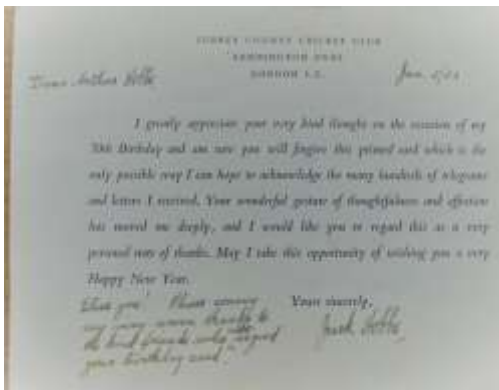 SURREY COUNTY CRICKET CLUB
KENNINGTON OVAL
LONDON S.E.
Dear Arthur
Jan.
I greatly appreciate your very kind thought on the occasion of my
70th Birthday and am sure you will forgive this printed card which is the
only possible way I can hope to acknowledge the many hundreds of telegrams
and letters I received. Your wonderful gesture of thoughtfulness and affection
has moved me deeply, and I would like you to regard this as a very
personal note of thanks. May I take this opportunity of wishing you a very
Happy New Year.
Yours sincerely,
Bless you! Please convey
my very warm thanks to
the kind friends who signed
your birthday card.
Jack Hobbs